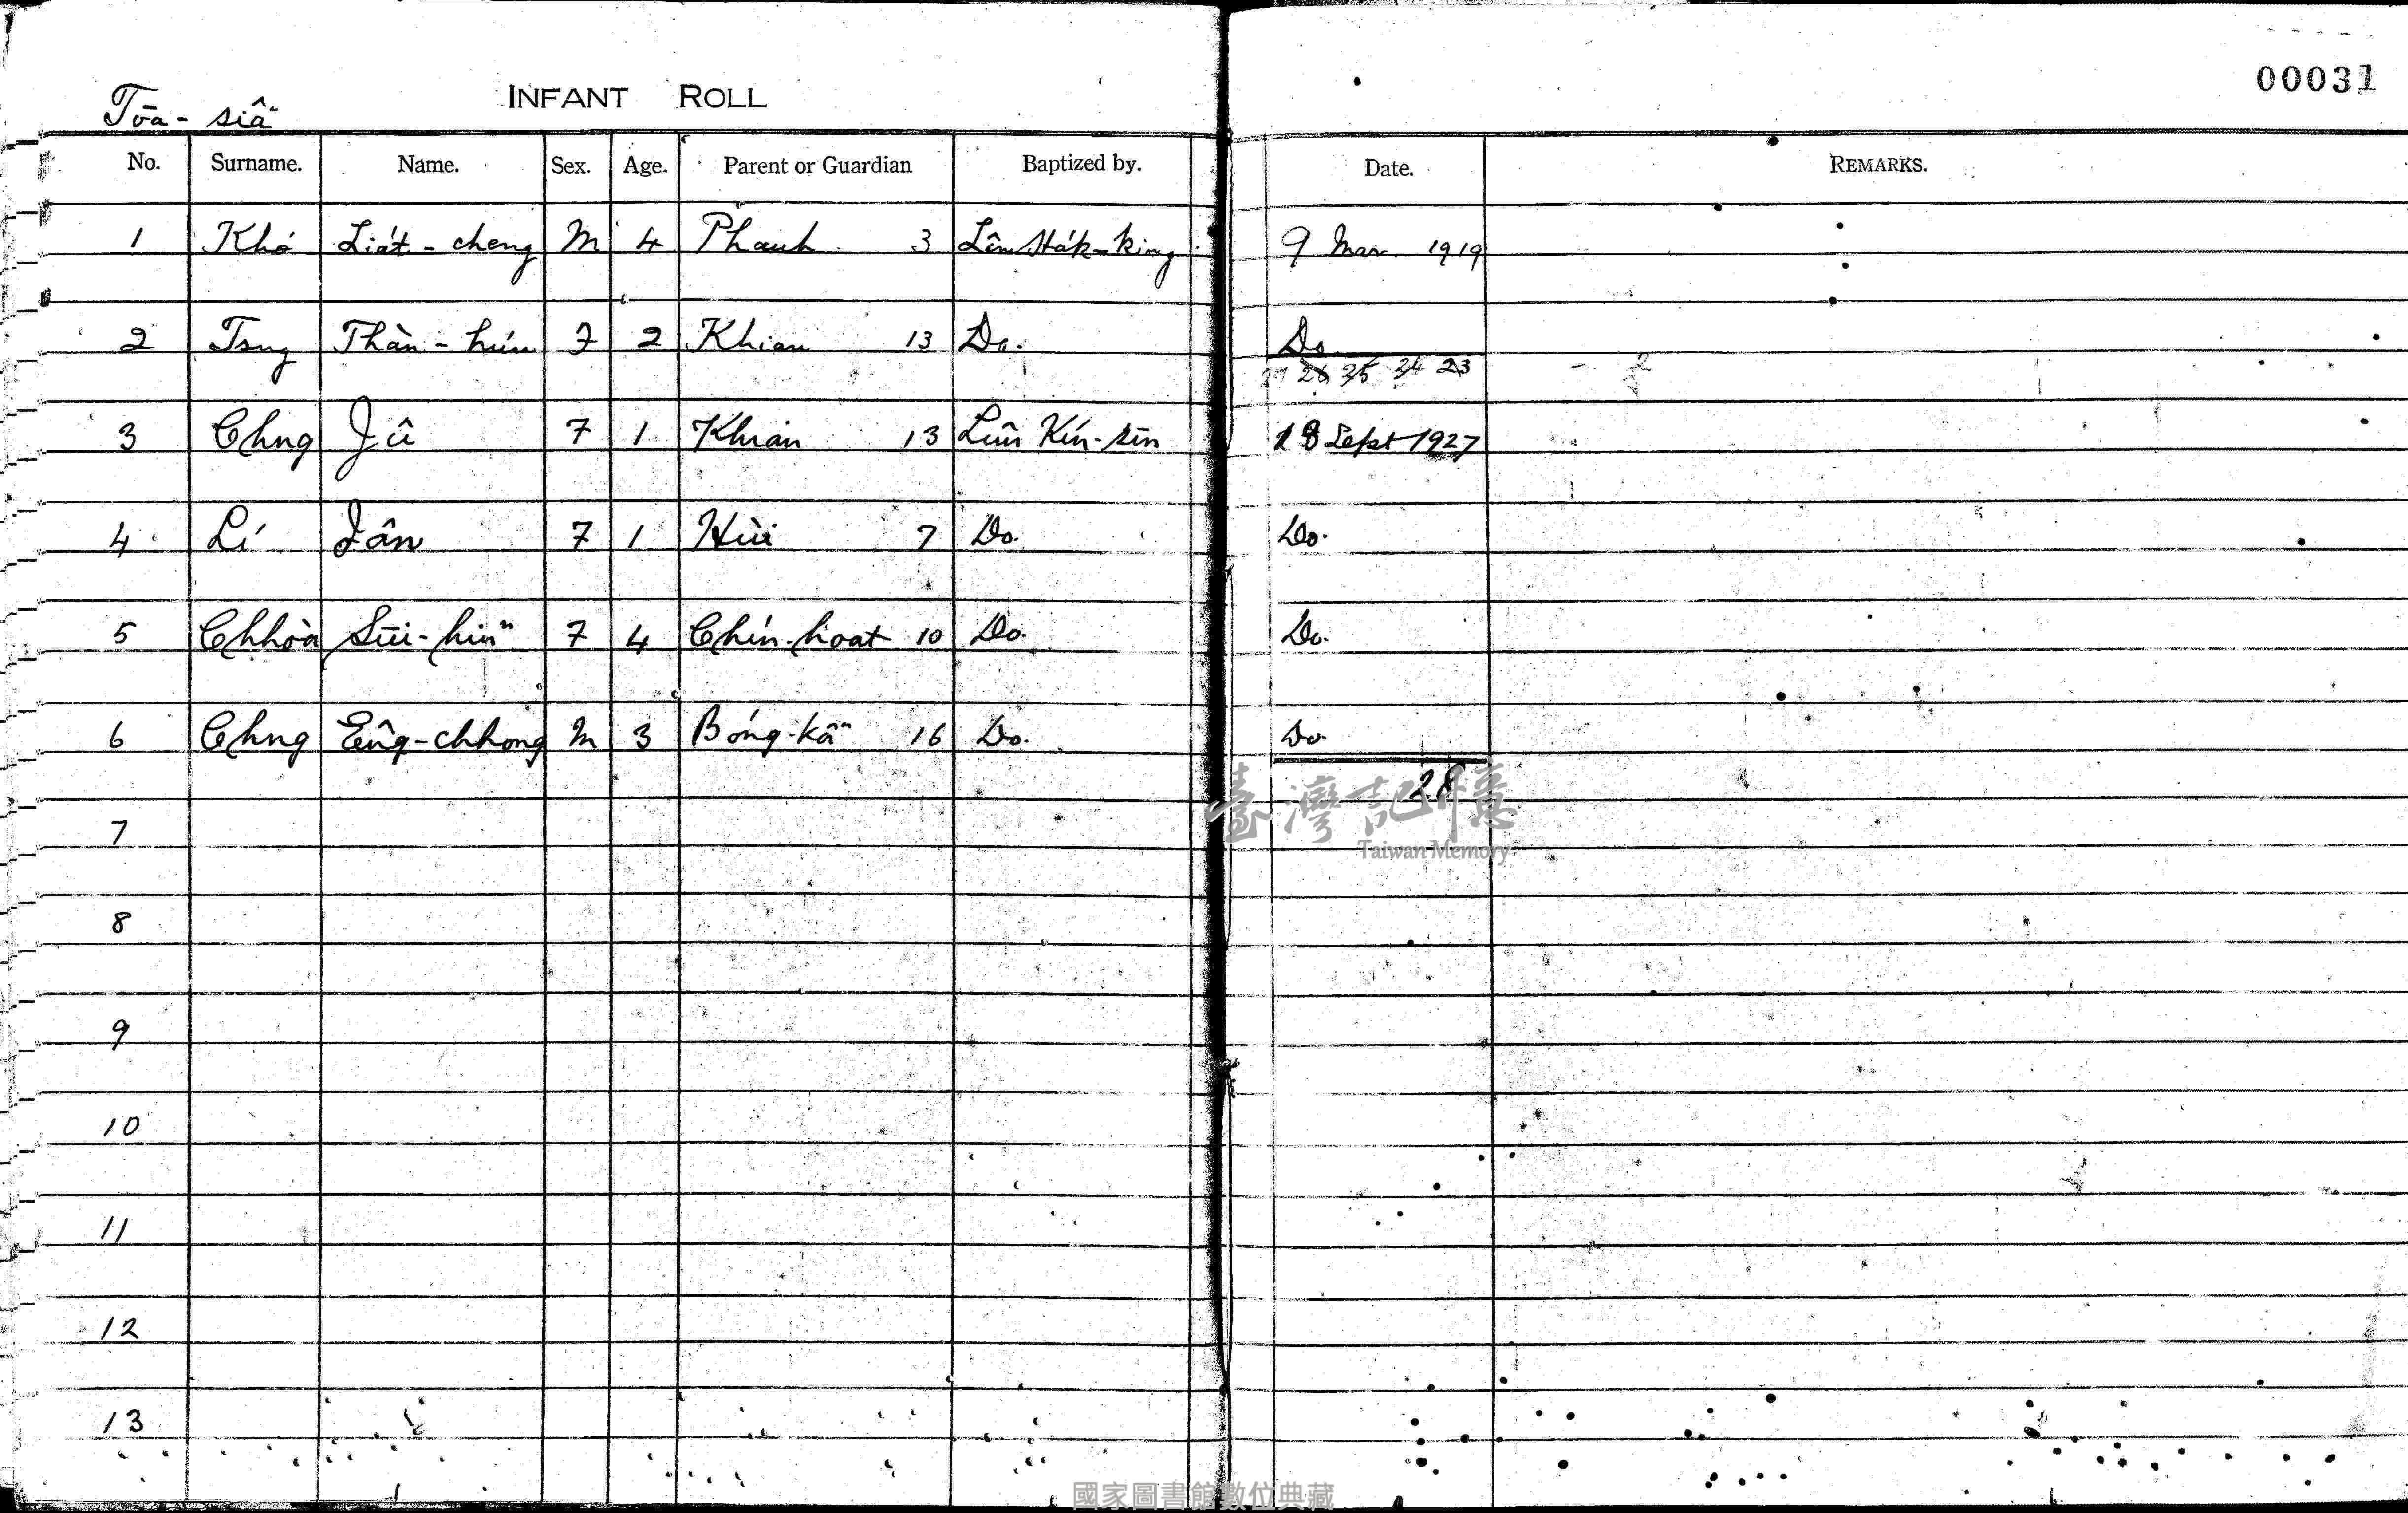 00031
Tōa-siâⁿ INFANT ROLL
No. Surname. Name. Sex. Age. Parent or Guardian Baptized by. Date. REMARKS.
1 Khó Lia̍t-cheng M 4 3 9 Mar 1919
2 Tsng F 2 Khian 13 Do. Do.
26 35 34 23
3 Chng Jû F 1 Khian 13 Lîm Kín-sîn 18 Sept 1927
4 Lí Jân F 1 Hùi 7 Do. Do.
5 Chhòa Sūi-hiuⁿ F 4 Chín-hoat 10 Do. Do.
6 Chng Êng-chhong M 3 Bóng-kâⁿ 16 Do. Do.
28
臺灣記憶
Taiwan Memory
7
8
9
10
11
12
13
國家圖書館數位典藏